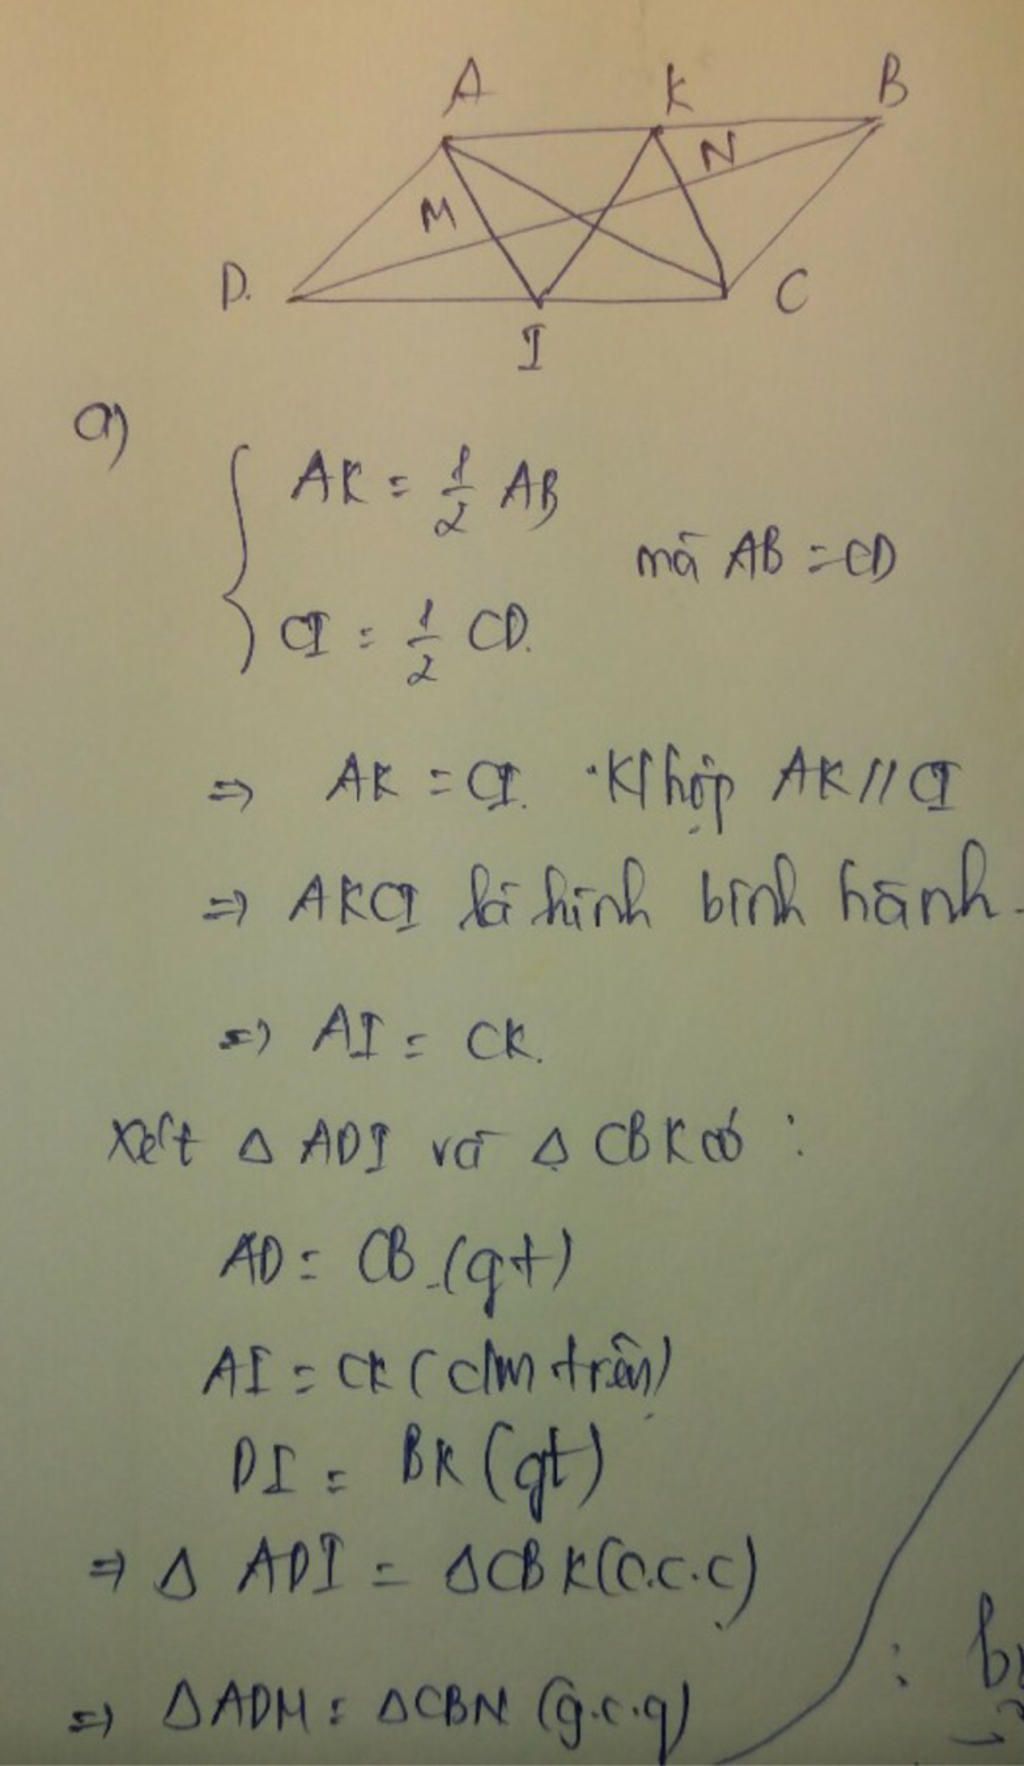 A K B
M N
D. C
I
a)
{ AK = 1/2 AB
mà AB = CD
CI = 1/2 CD.
=> AK = CI. Kết hợp AK // CI
=> AKCI là hình bình hành.
=> AI = CK.
Xét Δ ADI và Δ CBK có :
AD = CB (gt)
AI = CK (c/m trên)
DI = BK (gt)
=> Δ ADI = ΔCBK (c.c.c)
=> ΔADM = ΔCBN (g.c.g)